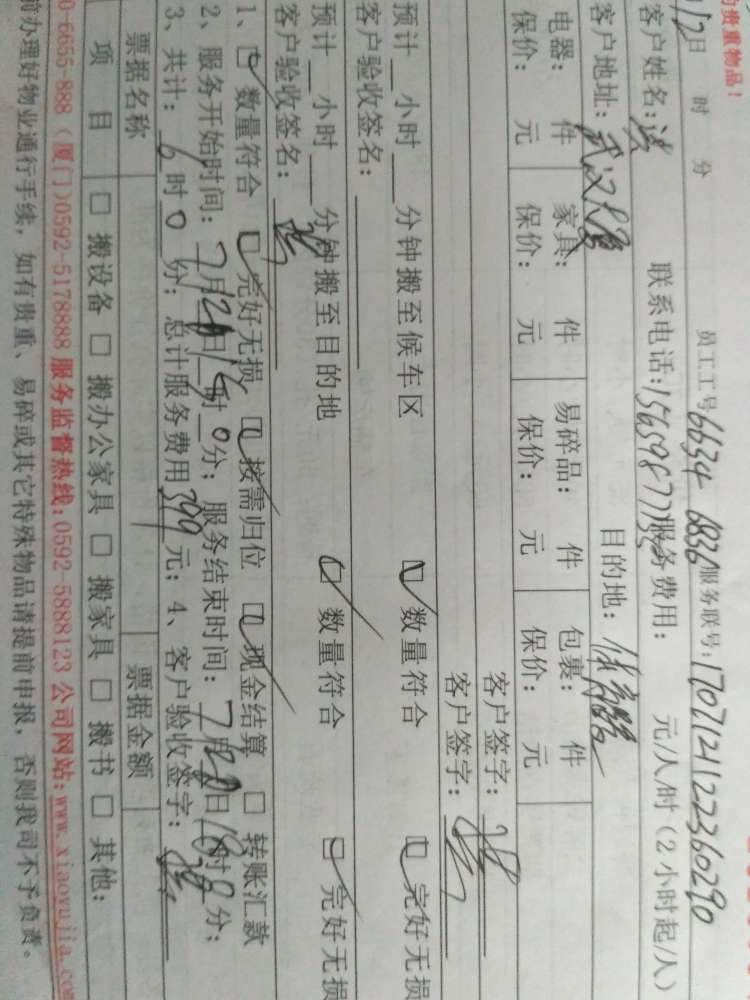 的贵重物品！
/12日 时 分 员工工号 6634 6836 服务联号：170712112236029０
客户姓名：洪 联系电话：15659877 服务费用： 元/人/时（2小时起/人）
客户地址：武汉大厦 目的地：体育
电器： 件 家具： 件 易碎品： 件 包裹： 件
保价： 元 保价： 元 保价： 元 保价： 元
客户签字：
客户签字：
预计__小时__分钟搬至候车区 数量符合 完好无损
客户验收签名：
预计__小时__分钟搬至目的地 数量符合 完好无损
客户验收签名：
1、数量符合 完好无损 按需归位 现金结算 □ 转账汇款
2、服务开始时间：7月12日 时0分；服务结束时间：7月12日18时0分；
3、共计：6时0分；总计服务费用399元；4、客户验收签字：
票据名称 票据金额
项 目 □ 搬设备 □ 搬办公家具 □ 搬家具 □ 搬书 □ 其他：
0-6655-888（厦门)0592-5178888 服务监督热线：0592-5888123 公司网站：www.xiaoyujia.com
前办理好物业通行手续，如有贵重、易碎或其它特殊物品请提前申报，否则我司不予负责。